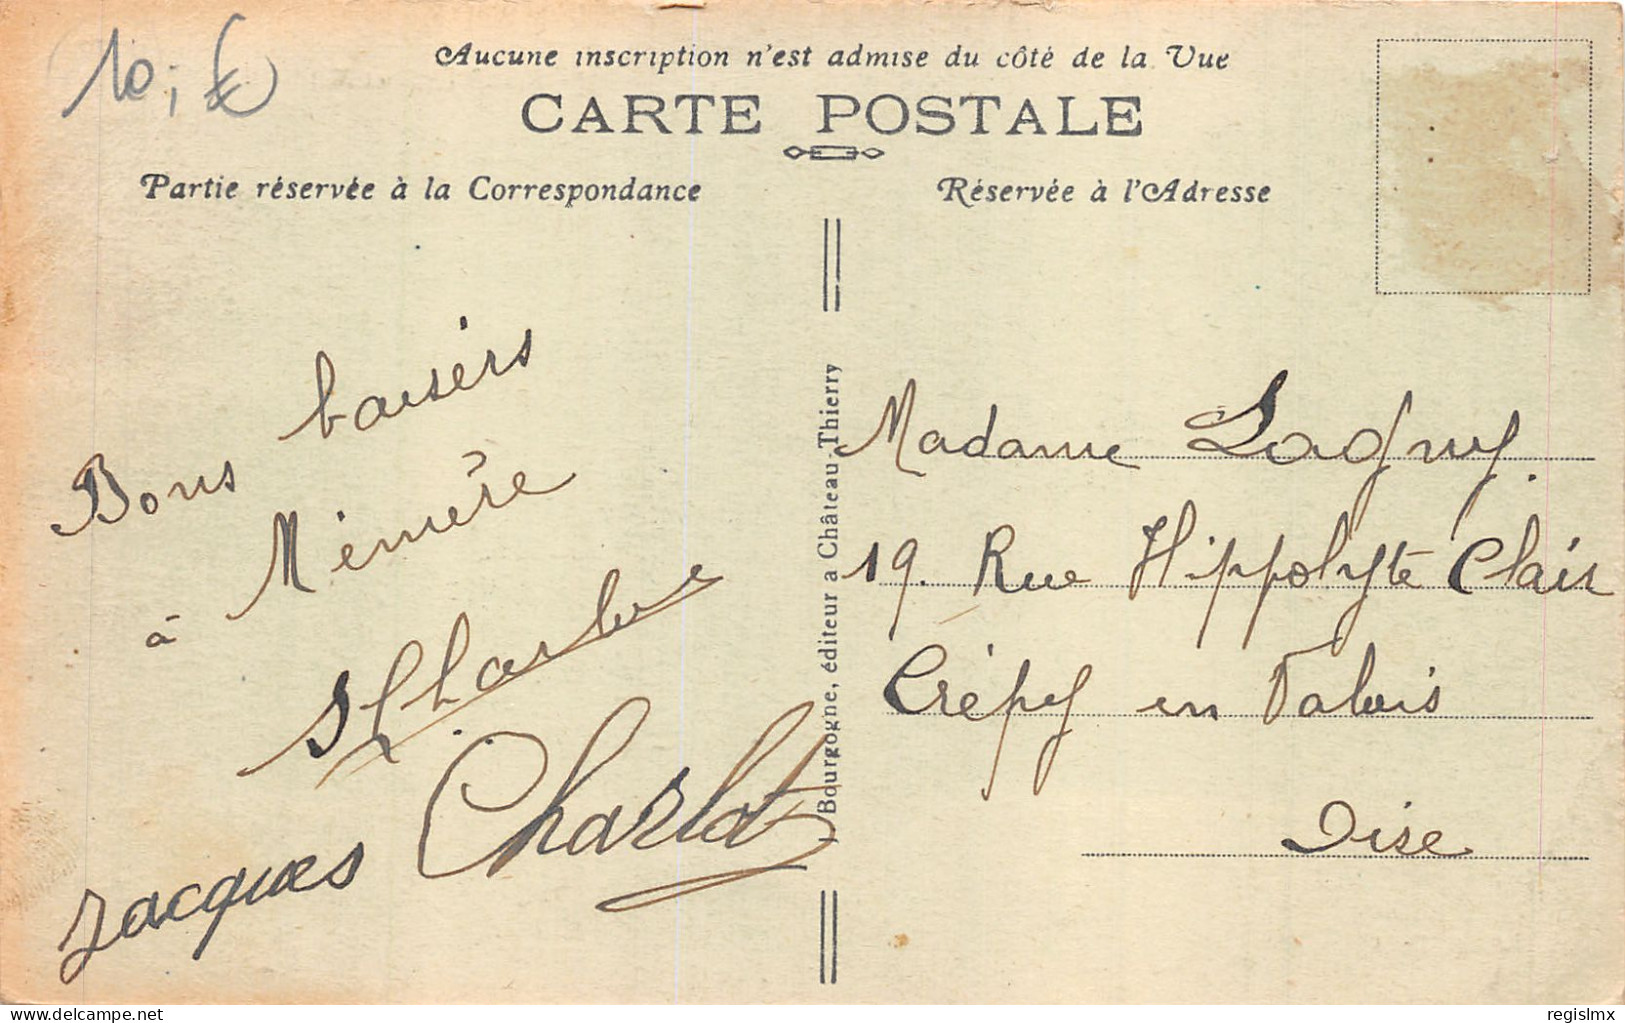 10,€
Aucune inscription n'est admise du côté de la Vue
CARTE POSTALE
Partie réservée à la Correspondance
Réservée à l'Adresse
Bons baisers
à Mémère
Jacques Charlot
Bourgogne, éditeur a Château Thierry
Madame Lagny.
19. Rue Hippolyte Clair
Crépy en Valois
Oise
delcampe.net
regislmx